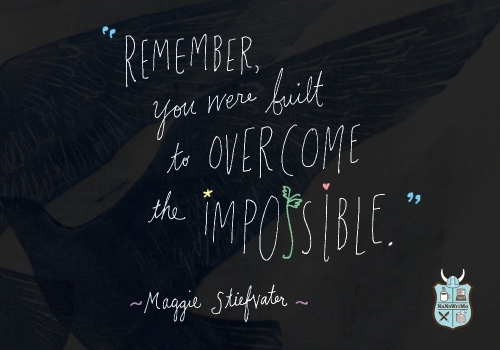 “REMEMBER,
you were built
to OVERCOME
the iMPOSSiBLE.”
~Maggie Stiefvater~
NaNoWriMo